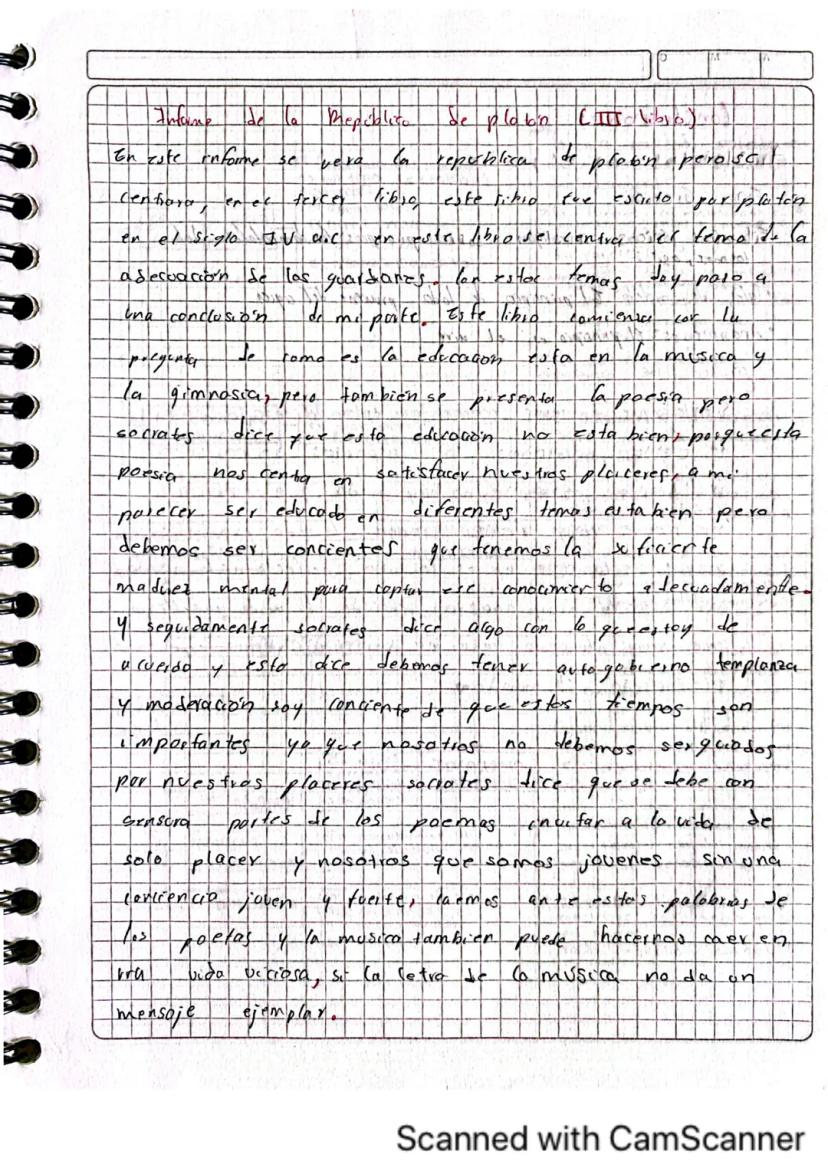 Informe de la Republica de platon (III libro)
En este informe se vera la republica de platon pero se
centrara, en el tercer libro, este libro fue escrito por platon
en el siglo IV a.c en este libro se centra el tema de la
adecuación de los guardianes. Con estos temas doy paso a
una conclusión de mi parte. Este libro comienza con la
pregunta de como es la educacion esta en la musica y
la gimnasia, pero tambien se presenta la poesia pero
socrates dice que esta educación no esta bien, porque esta
poesia nos centra en satisfacer nuestros placeres, a mi
parecer ser educado en diferentes temas esta bien pero
debemos ser concientes que tenemos la suficiente
madurez mental para captar ese conocimiento adecuadamente.
y seguidamente socrates dice algo con lo que estoy de
acuerdo y esto dice debemos tener autogobierno templanza
y moderación soy conciente de que estos tiempos son
importantes ya que nosotros no debemos ser guiados
por nuestros placeres socrates dice que se debe con
sensura partes de los poemas invitar a la vida de
solo placer y nosotros que somos jovenes sin una
conciencia joven y fuerte, caemos ante estas palabras de
los poetas y la musica tambien puede hacernos caer en
una vida viciosa, si la letra de la musica no da un
mensaje ejemplar.
Scanned with CamScanner